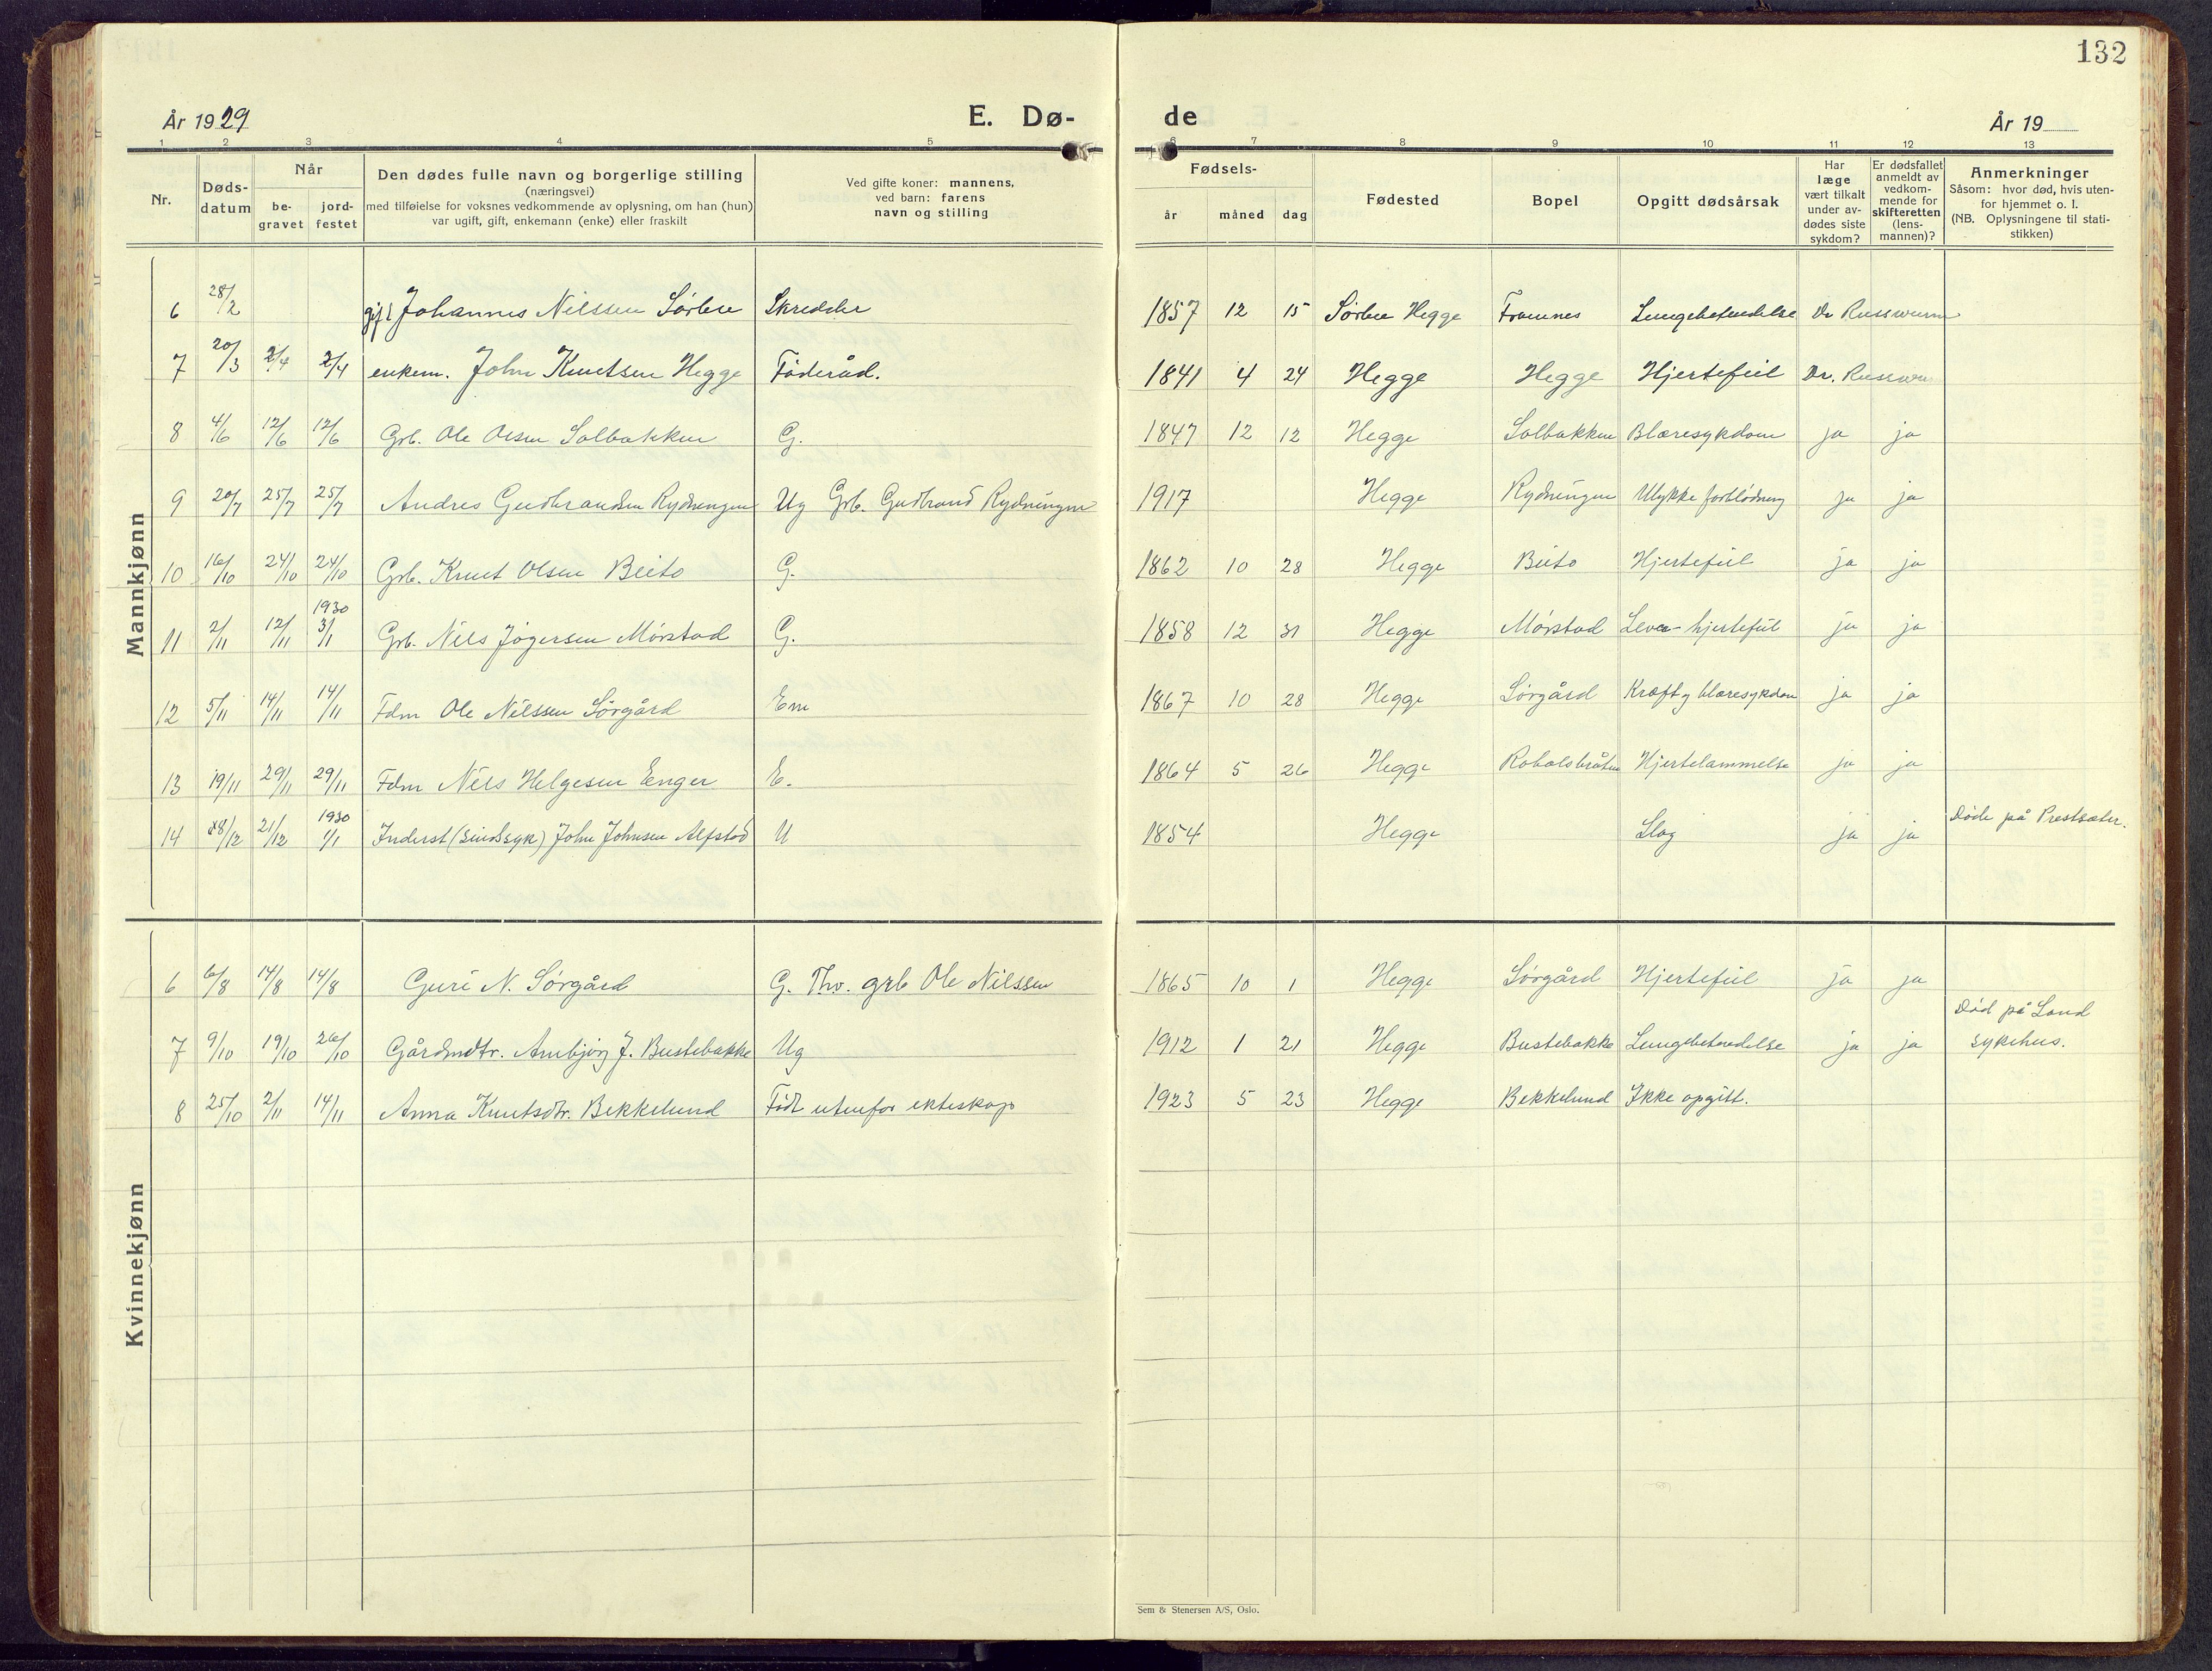 132
År 1929
E. Dø-
de
År 19
1 2 3 4 5
6 7 8 9 10 11 12 13
Nr.
Døds-
datum
Når
be-
gravet
jord-
festet
Den dødes fulle navn og borgerlige stilling
(næringsvei)
med tilføielse for voksnes vedkommende av oplysning, om han (hun)
var ugift, gift, enkemann (enke) eller fraskilt
Ved gifte koner: mannens,
ved barn: farens
navn og stilling
Fødsels-
år måned dag
Fødested
Bopel
Opgitt dødsårsak
Har
læge
vært tilkalt
under av-
dødes siste
sykdom?
Er dødsfallet
anmeldt av
vedkom-
mende for
skifteretten
(lens-
mannen)?
Anmerkninger
Såsom: hvor død, hvis uten-
for hjemmet o. l.
(NB. Oplysningene til stati-
stikken)
Mannkjønn
6 28/2 gift Johannes Nilssen Sørbu Skredder 1857 12 15 Sørbu Hegge Framnes Lungebetendelse Dr Russwurm
7 20/3 2/4 2/4 enkem. John Knutsen Hegge Föderåd. 1841 4 24 Hegge Hegge Hjertefeil Dr. Russwu
8 4/6 12/6 12/6 Grb. Ole Olsen Solbakken G. 1847 12 12 Hegge Solbakken Blæresykdom ja ja
9 20/7 25/7 25/7 Andres Gudbrandsen Rydningen Ug Grb. Gudbrand Rydningen 1917 Hegge Rydningen Ulykke forblødning ja ja
10 16/10 24/10 24/10 Grb. Knut Olsen Beito G. 1862 10 28 Hegge Beito Hjertefeil ja ja
1930
11 2/11 12/11 3/1 Grb. Nils Jögersen Mörstad G. 1858 12 31 Hegge Mörstad Lever- hjertefeil ja ja
12 5/11 14/11 14/11 Fdm Ole Nilssen Sørgård Em 1867 10 28 Hegge Sørgård Kræft og blæresykdom ja ja
13 19/11 29/11 29/11 Fdm Nils Helgesen Enger E. 1864 5 26 Hegge Robolsbråten Hjertelammelse ja ja
1930
14 8/12 21/12 1/1 Inderst (sindssyk) John Johnsen Alfstad U 1854 Hegge Slag ja ja Döde på Prestsæter.
Kvinnekjønn
6 6/8 14/8 14/8 Guri N. Sørgård G. Thv. grb Ole Nilssen 1865 10 1 Hegge Sørgård Hjertefeil ja ja
7 9/10 19/10 26/10 Gårdmdtr. Ambjörg J. Bustebakke Ug 1912 1 21 Hegge Bustebakke Lungebetendelse ja ja Död på Land
sykehus.
8 25/10 2/11 14/11 Anna Knutsdtr. Bekkelund Födt utenfor ekteskap 1923 5 23 Hegge Bekkelund Ikke opgitt.
Sem & Stenersen A/S, Oslo.